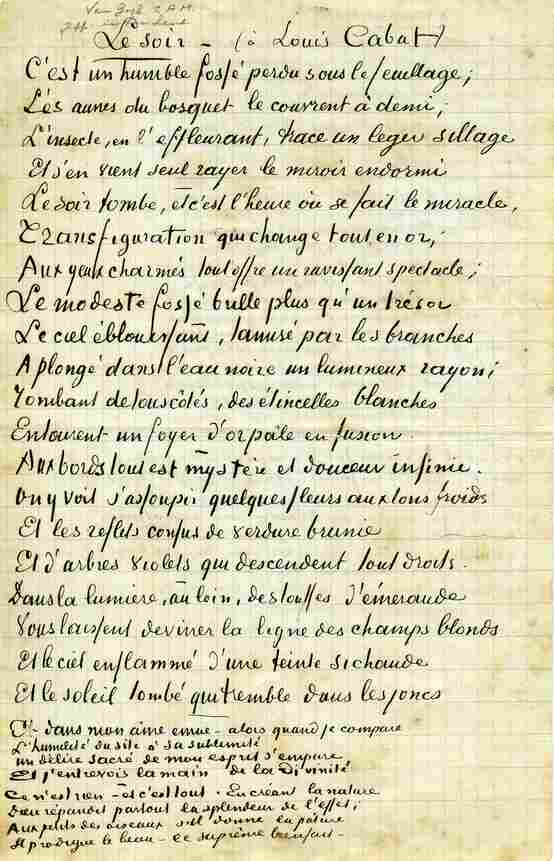 Le soir - (à Louis Cabat)
C'est un humble fossé perdu sous le feuillage;
Les aunes du bosquet le couvrent à demi;
L'insecte, en l'effleurant, trace un leger sillage
Et s'en vient seul rayer le miroir endormi
Le soir tombe, et c'est l'heure où se fait le miracle,
Transfiguration qui change tout en or;
Aux yeux charmés tout offre un ravissant spectacle;
Le modeste fossé brille plus qu'un trésor
Le ciel éblouissant, tamisé par les branches
A plongé dans l'eau noire un lumineux rayon;
Tombant de tous côtés, des étincelles blanches
Entourent un foyer d'or pâle en fusion.
Aux bords tout est mystère et douceur infinie.
On y voit s'assoupir quelques fleurs aux tons froids
Et les reflets confus de verdure brunie
Et d'arbres violets qui descendent tout droits.
Dans la lumière, au loin, des touffes d'émeraude
Vous laissent deviner la ligne des champs blonds
Et le ciel enflammé d'une teinte si chaude
Et le soleil tombé qui tremble dans les joncs
Et dans mon âme émue - alors quand je compare
L'humilité du site à sa sublimité
un délire sacré de mon esprit s'empare
Et j'entrevois la main de la divinité
Ce n'est rien - et c'est tout. En créant la nature
Dieu répandit partout la splendeur de l'effet;
Aux petits des oiseaux s'il donne la pâture
Il prodigue le beau - ce suprême bienfait -